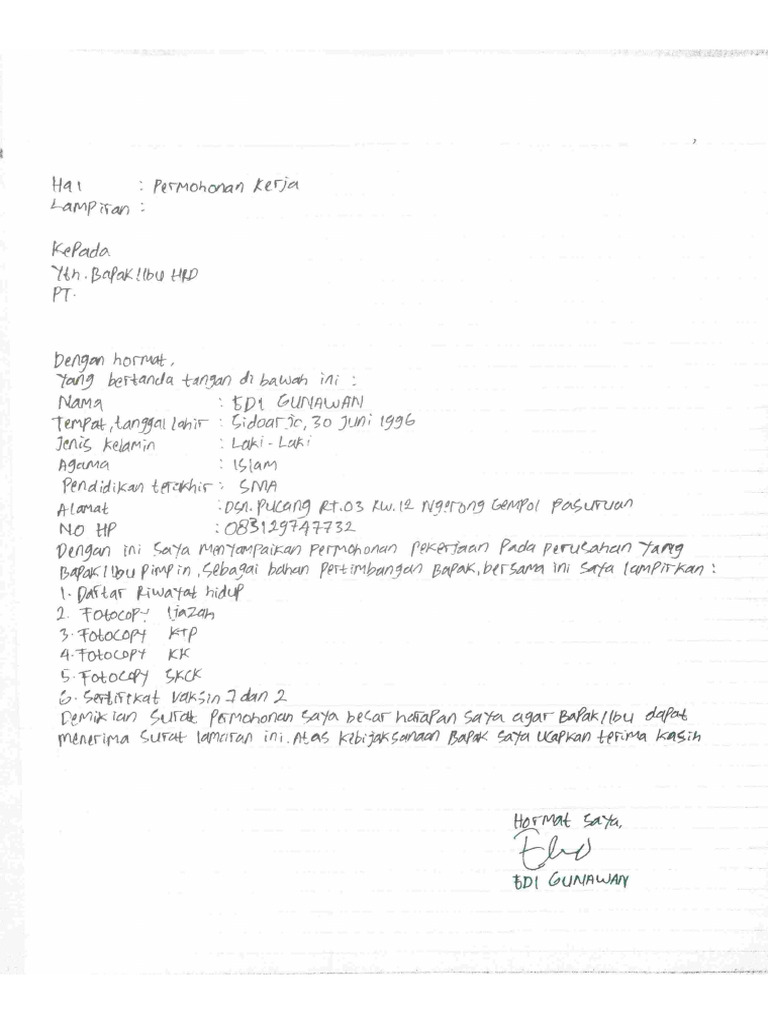 Hal : Permohonan Kerja
Lampiran :
Kepada
Yth. Bapak/Ibu HRD
PT.
Dengan hormat,
Yang bertanda tangan di bawah ini :
Nama : EDI GUNAWAN
Tempat, tanggal lahir : Sidoarjo, 30 Juni 1996
Jenis Kelamin : Laki-Laki
Agama : Islam
Pendidikan terakhir : SMA
Alamat : Dsn. Pucang Rt.03 Rw.12 Ngerong Gempol Pasuruan
NO HP : 083129747732
Dengan ini saya menyampaikan permohonan pekerjaan pada perusahan yang
Bapak/Ibu pimpin, sebagai bahan pertimbangan Bapak, bersama ini saya lampirkan :
1. Daftar Riwayat hidup
2. Fotocopy Ijazah
3. Fotocopy KTP
4. Fotocopy KK
5. Fotocopy SKCK
6. Sertifikat Vaksin 1 dan 2
Demikian surat permohonan saya besar harapan saya agar Bapak/Ibu dapat
menerima surat lamaran ini. Atas kebijaksanaan Bapak saya ucapkan terima kasih
Hormat saya,
EDI GUNAWAN